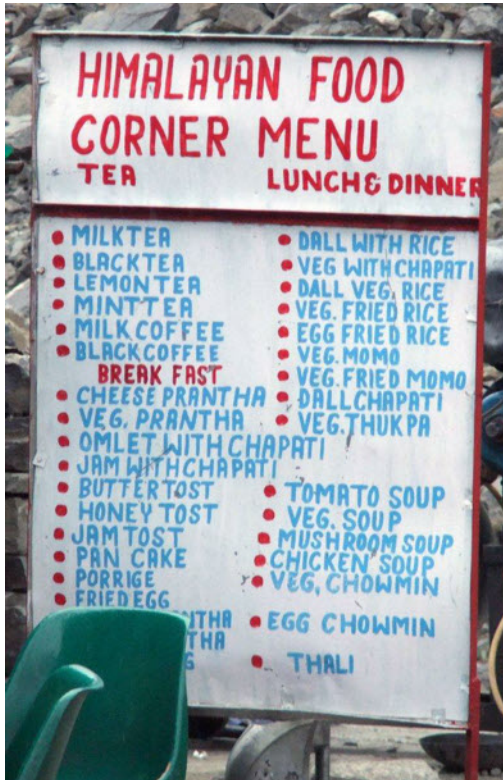 HIMALAYAN FOOD
CORNER MENU
TEA
MILKTEA
BLACKTEA
LEMONTEA
MINTTEA
MILKCOFFEE
BLACKCOFFEE
BREAK FAST
CHEESE PRANTHA
VEG. PRANTHA
OMLET WITH CHAPATI
JAM WITH CHAPATI
BUTTER TOST
HONEY TOST
JAM TOST
PAN CAKE
PORRIGE
FRIED EGG
LUNCH & DINNER
DALL WITH RICE
VEG WITH CHAPATI
DALL VEG. RICE
VEG. FRIED RICE
EGG FRIED RICE
VEG. MOMO
VEG. FRIED MOMO
DALL CHAPATI
VEG. THUKPA
TOMATO SOUP
VEG. SOUP
MUSHROOM SOUP
CHICKEN SOUP
VEG, CHOWMIN
EGG CHOWMIN
THALI